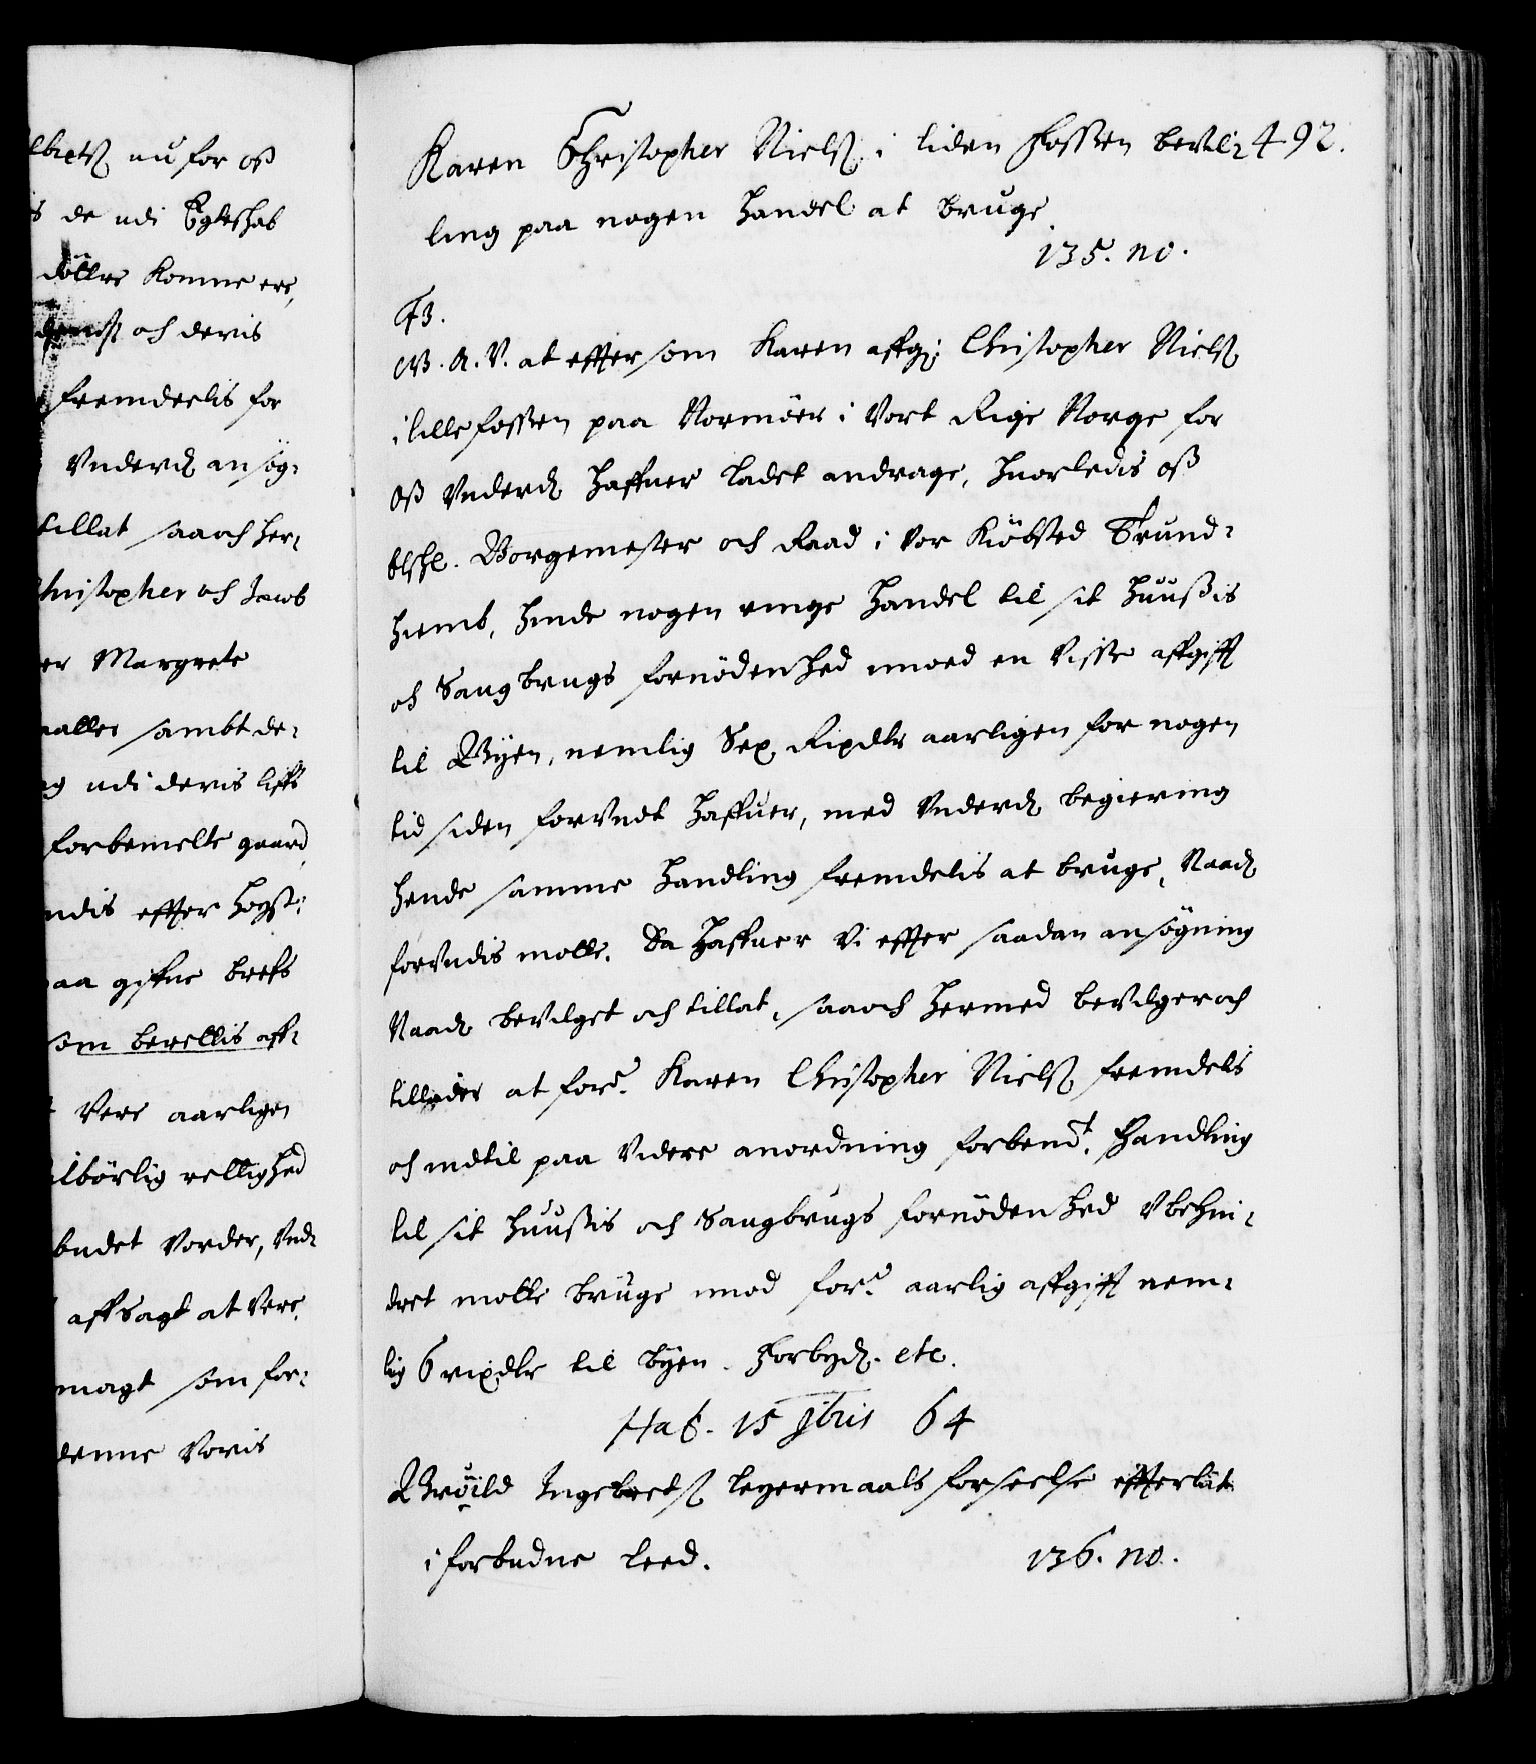 lbretß nu for oß
s de udi Egteskab
döttre komme ere,
och deris
fremdeelis for
Vnderd ansög-
tillat saa och her-
Christopher och Jacob
er Margrete
aller sambt de-
ng udi deris liffs
forbemelte gaard
ndis effter högst-
aa gifne brefs
som berettis aff-
t Vere aarligen
ilbörlig rettighed
budet Vorder, Vnd-
affsagt at Vere
magt som for-
denne Voris
Karen Christopher Nielß i liden Fossen bevil- 492.
ling paa nogen Handel at bruge
135. no.
F3.
G. A. V. at effter som Karen affg: Christopher Nielß
i lille fossen paa Normöer i Vort Rige Norge for
Oß Vnderd haffuer ladet andrage, huorledis oß
elskl. Borgemester och Raad i Vor Kiöbsted Trund-
hiemb, hende nogen ringe Handel til sit Huußis
och Saugbrugs fornödenhed imod en Visse affgifft
til Byen, nemlig Sex Rixdlr aarligen for nogen
tid siden forundt haffuer, med Vnderd begiering
hende samme Handling fremdelis at bruge, Naad
forundis motte. Da haffuer Vi effter saadan ansögning
Naad bevilget och tillat, saa och hermed bevilger och
tillader at ford Karen Christopher Nielß fremdelis
och indtil paa Videre anordning forbemt. Handling
til sit Huußis och Saugbrugs fornödenhed Vbehin-
dret motte bruge imod ford aarlig affgifft nem-
lig 6 rixdlr til byen. Forbyd. etc.
Haf. 15 9bris 64
Ingebretß leyermaals forseelse effterlat
i forbudne leed. 136. no.